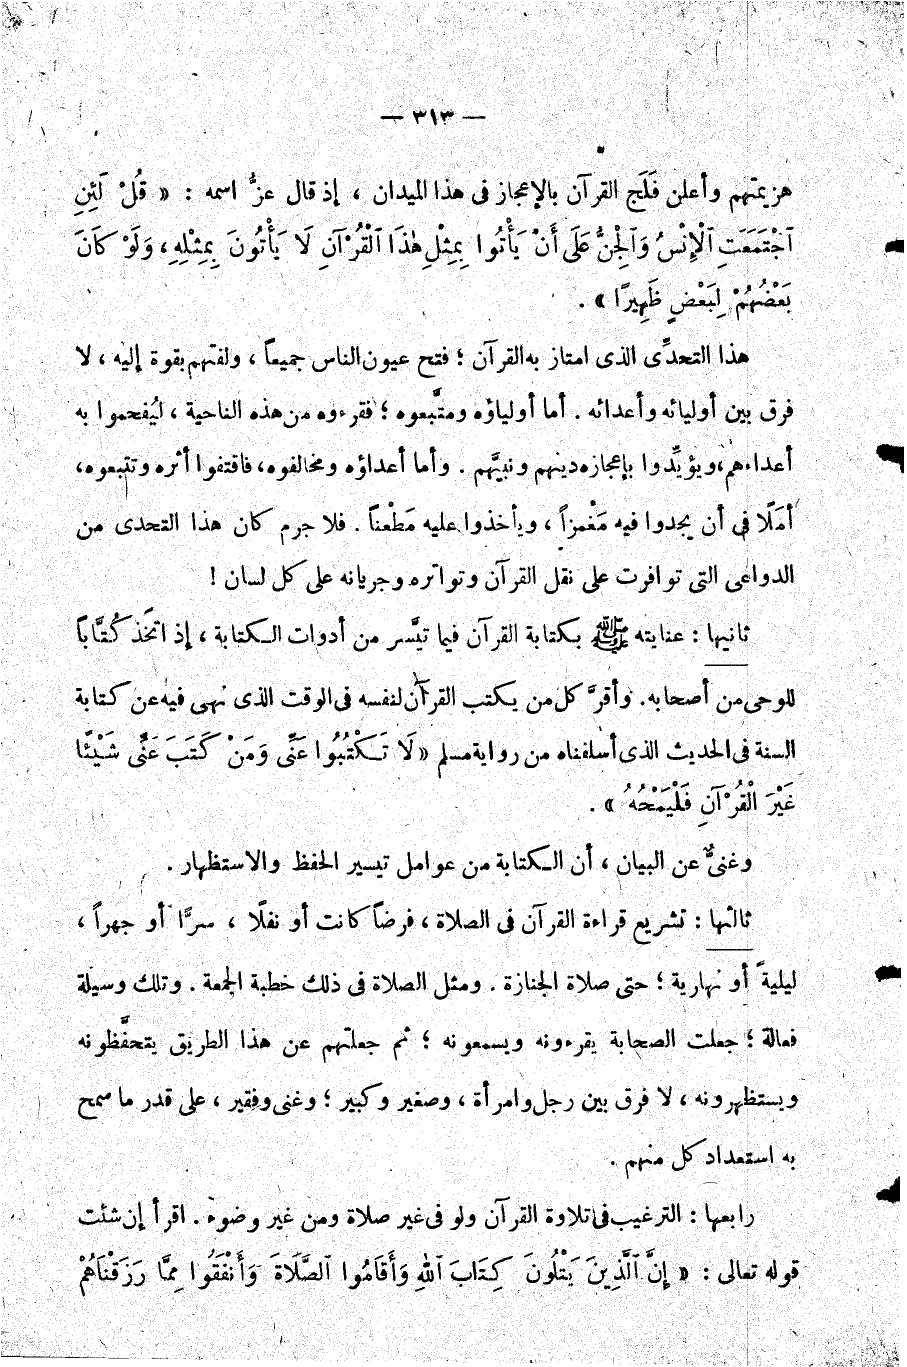 — ٣١٣ —
هزيمتهم وأعلن فَلَج القرآن بالإعجاز فى هذا الميدان ، إذ قال عزَّ اسمه : « قُلْ لَئِنِ
ٱجْتَمَعَتِ ٱلْإِنْسُ وَٱلْجِنُّ عَلَى أَنْ يَأْتُوا بِمِثْلِ هٰذَا ٱلْقُرْآنِ لَا يَأْتُونَ بِمِثْلِهِ ، وَلَوْ كَانَ
بَعْضُهُمْ لِبَعْضٍ ظَهِيرًا » .
هذا التحدِّى الذى امتاز به القرآن ؛ فتح عيون الناس جميعاً ، ولفتهم بقوة إليه ، لا
فرق بين أوليائه وأعدائه . أما أولياؤه ومتَّبعوه ؛ فقرءوه من هذه الناحية ، ليُفحموا به
أعداءهم ، ويؤيِّدوا بإعجازه دينهم ونبيَّهم . وأما أعداؤه ومخالفوه ، فاقتفوا أثره وتتبعوه ،
أمَلًا فى أن يجدوا فيه مَغْمزاً ، ويأخذوا عليه مَطْعناً . فلا جرم كان هذا التحدى من
الدواعى التى توافرت على نقل القرآن وتواتره وجريانه على كل لسان !
ثانيها : عنايته ﷺ بكتابة القرآن فيما تيسَّر من أدوات الكتابة ، إذ اتخَذ كُتَّاباً
للوحى من أصحابه . وأقرَّ كل من يكتب القرآن لنفسه فى الوقت الذى نهى فيه عن كتابة
السنة فى الحديث الذى أسلفناه من رواية مسلم « لَا تَكْتُبُوا عَنِّى وَمَنْ كَتَبَ عَنِّى شَيْئًا
غَيْرَ الْقُرْآنِ فَلْيَمْحُهُ » .
وغنىٌّ عن البيان ، أن الكتابة من عوامل تيسير الحفظ والاستظهار .
ثالثها : تشريع قراءة القرآن فى الصلاة ، فرضاً كانت أو نفلًا ، سرًّا أو جهراً ،
ليليةً أو نهارية ؛ حتى صلاة الجنازة . ومثل الصلاة فى ذلك خطبة الجمعة . وتلك وسيلة
فعالة ؛ جعلت الصحابة يقرءونه ويسمعونه ؛ ثم جعلتهم عن هذا الطريق يتحفَّظونه
ويستظهرونه ، لا فرق بين رجل وامرأة ، وصغير وكبير ؛ وغنى وفقير ، على قدر ما سمح
به استعداد كل منهم .
رابعها : الترغيب فى تلاوة القرآن ولو فى غير صلاة ومن غير وضوء . اقرأ إن شئت
قوله تعالى : « إِنَّ ٱلَّذِينَ يَتْلُونَ كِتَابَ ٱللهِ وَأَقَامُوا ٱلصَّلَاةَ وَأَنْفَقُوا مِمَّا رَزَقْنَاهُمْ